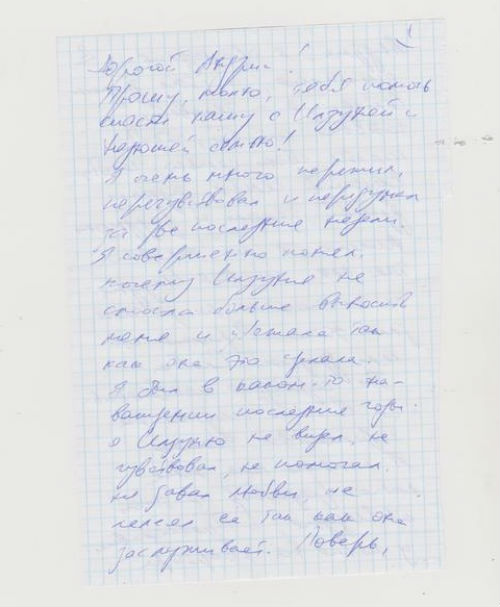 Дорогой Андрис!
Прошу, молю, тебя помочь
спасти нашу с Илзуней и
Нюшей семью!
Я очень много пережил,
перечувствовал и передумал
за две последние недели.
Я совершенно понял,
почему Илзуня не
смогла больше выносить
меня и уехала так
как она это сделала.
Я был в каком-то на-
важдении последние годы.
Я Илзуню не видел, не
чувствовал, не помогал,
не давал любви, не
лелеял её так как она
заслуживает. Поверь,